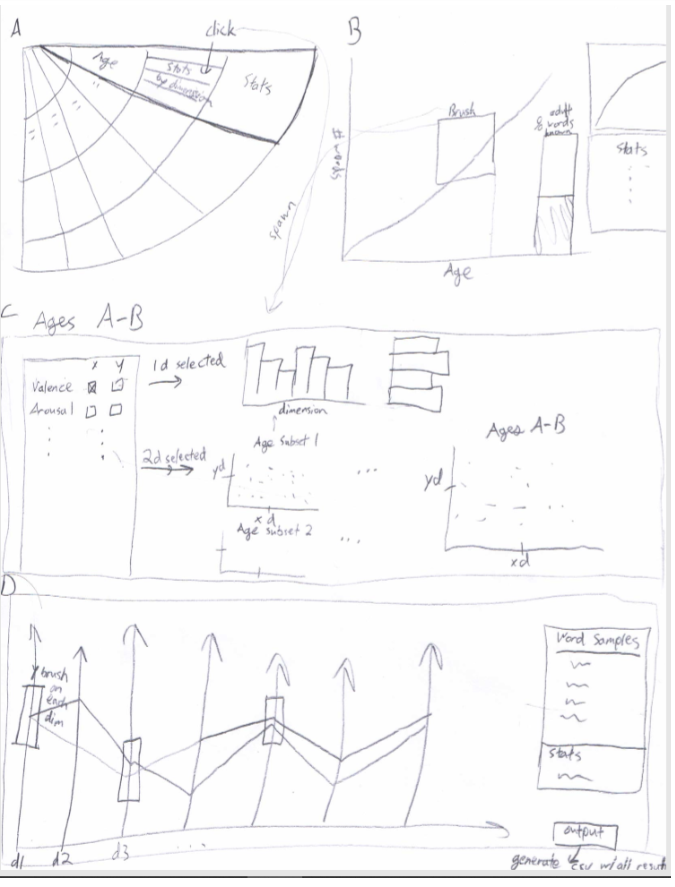 A
click
Age
Stats
by dimension
Stats
spawn
B
Brush
of words
known
Age
Stats
C Ages A-B
x y
Valence
Arousal
1d selected
dimension
2d selected
Age Subset 1
yd
xd
Age subset 2
...
...
Ages A-B
yd
xd
D
brush
on
each
dim
d1 d2 d3 ...
Word Samples
Stats
output
generate csv w/ all result